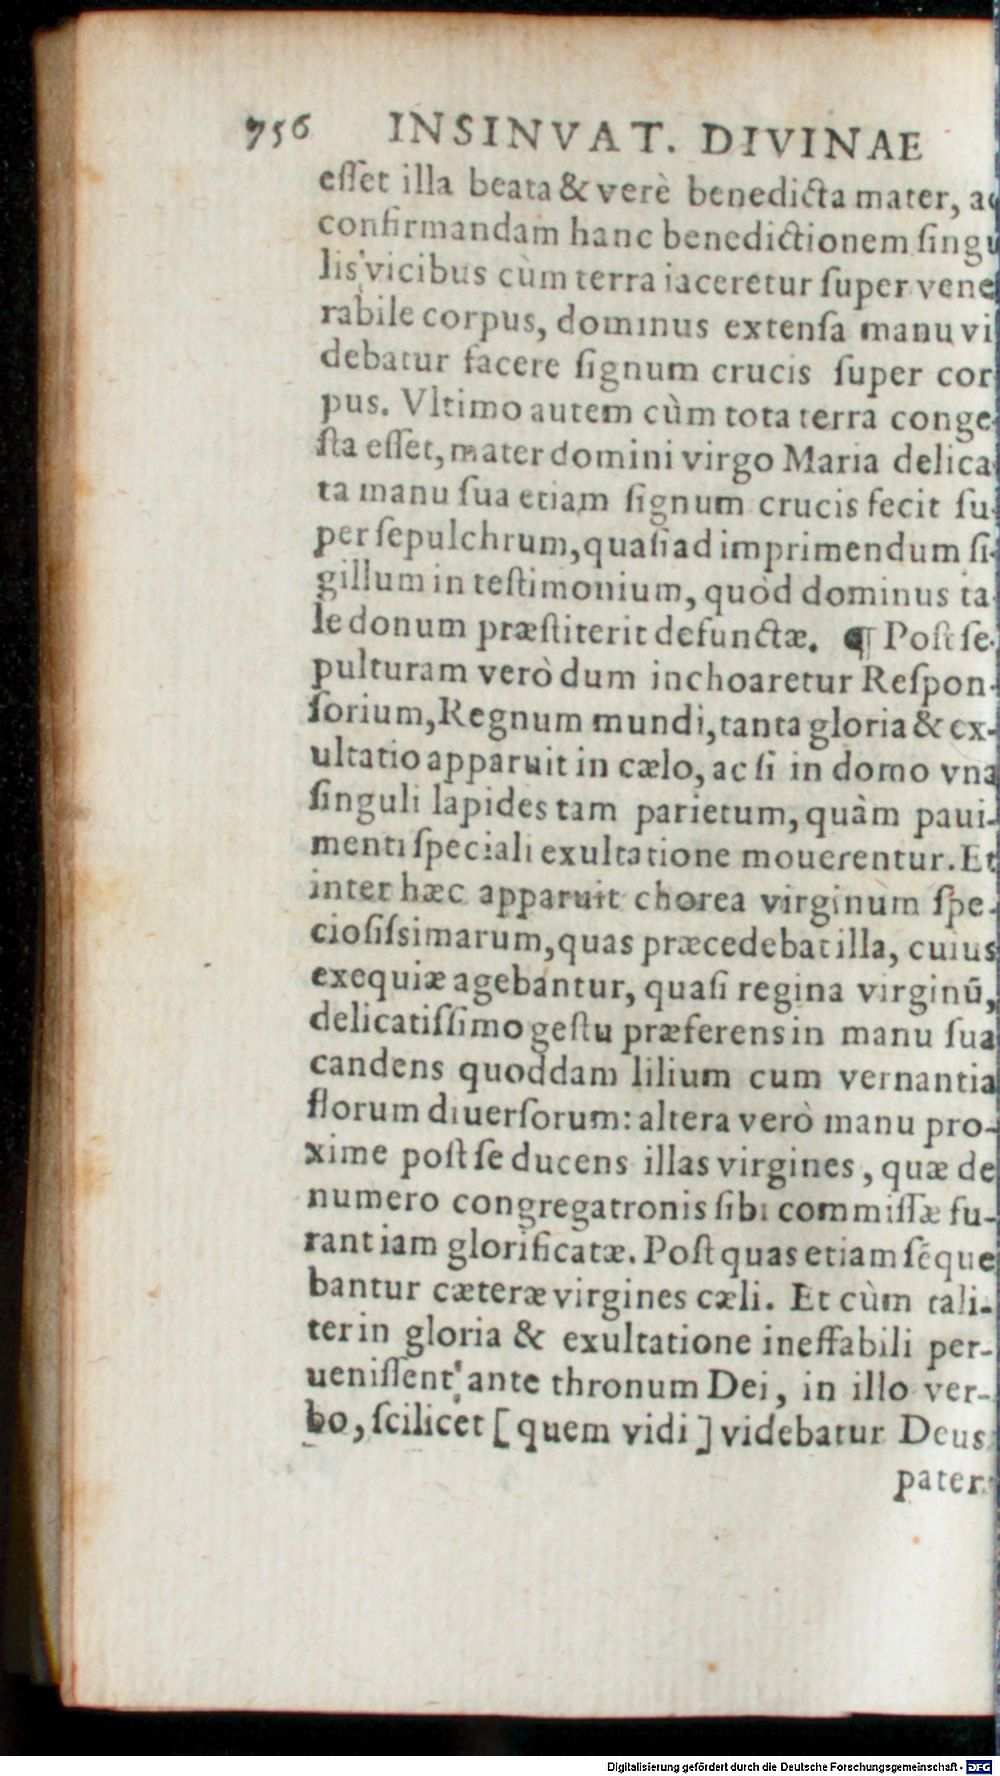 756 INSINVAT. DIVINAE
eſſet illa beata & verè benedicta mater, ac
confirmandam hanc benedictionem ſingu
lis vicibus cùm terra iaceretur ſuper vene
rabile corpus, dominus extenſa manu vi
debatur facere ſignum crucis ſuper cor
pus. Vltimo autem cùm tota terra conge-
ſta eſſet, mater domini virgo Maria delica
ta manu ſua etiam ſignum crucis fecit ſu-
per ſepulchrum, quaſi ad imprimendum ſi-
gillum in teſtimonium, quòd dominus ta-
le donum præſtiterit defunctæ. ¶ Poſt ſe-
pulturam verò dum inchoaretur Reſpon-
ſorium, Regnum mundi, tanta gloria & ex-
ultatio apparuit in cælo, ac ſi in domo vna
ſinguli lapides tam parietum, quàm paui-
menti ſpeciali exultatione mouerentur. Et
inter hæc apparuit chorea virginum ſpe-
cioſiſsimarum, quas præcedebat illa, cuius
exequiæ agebantur, quaſi regina virginū,
delicatiſſimo geſtu præferens in manu ſua
candens quoddam lilium cum vernantia
florum diuerſorum: altera verò manu pro-
xime poſt ſe ducens illas virgines, quæ de
numero congregatronis ſibi commiſſæ fu-
rant iam glorificatæ. Poſt quas etiam ſeque
bantur cæteræ virgines cæli. Et cùm tali-
ter in gloria & exultatione ineffabili per-
ueniſſent ante thronum Dei, in illo ver-
bo, ſcilicet [quem vidi] videbatur Deus
pater
Digitalisierung gefördert durch die Deutsche Forschungsgemeinschaft - DFG